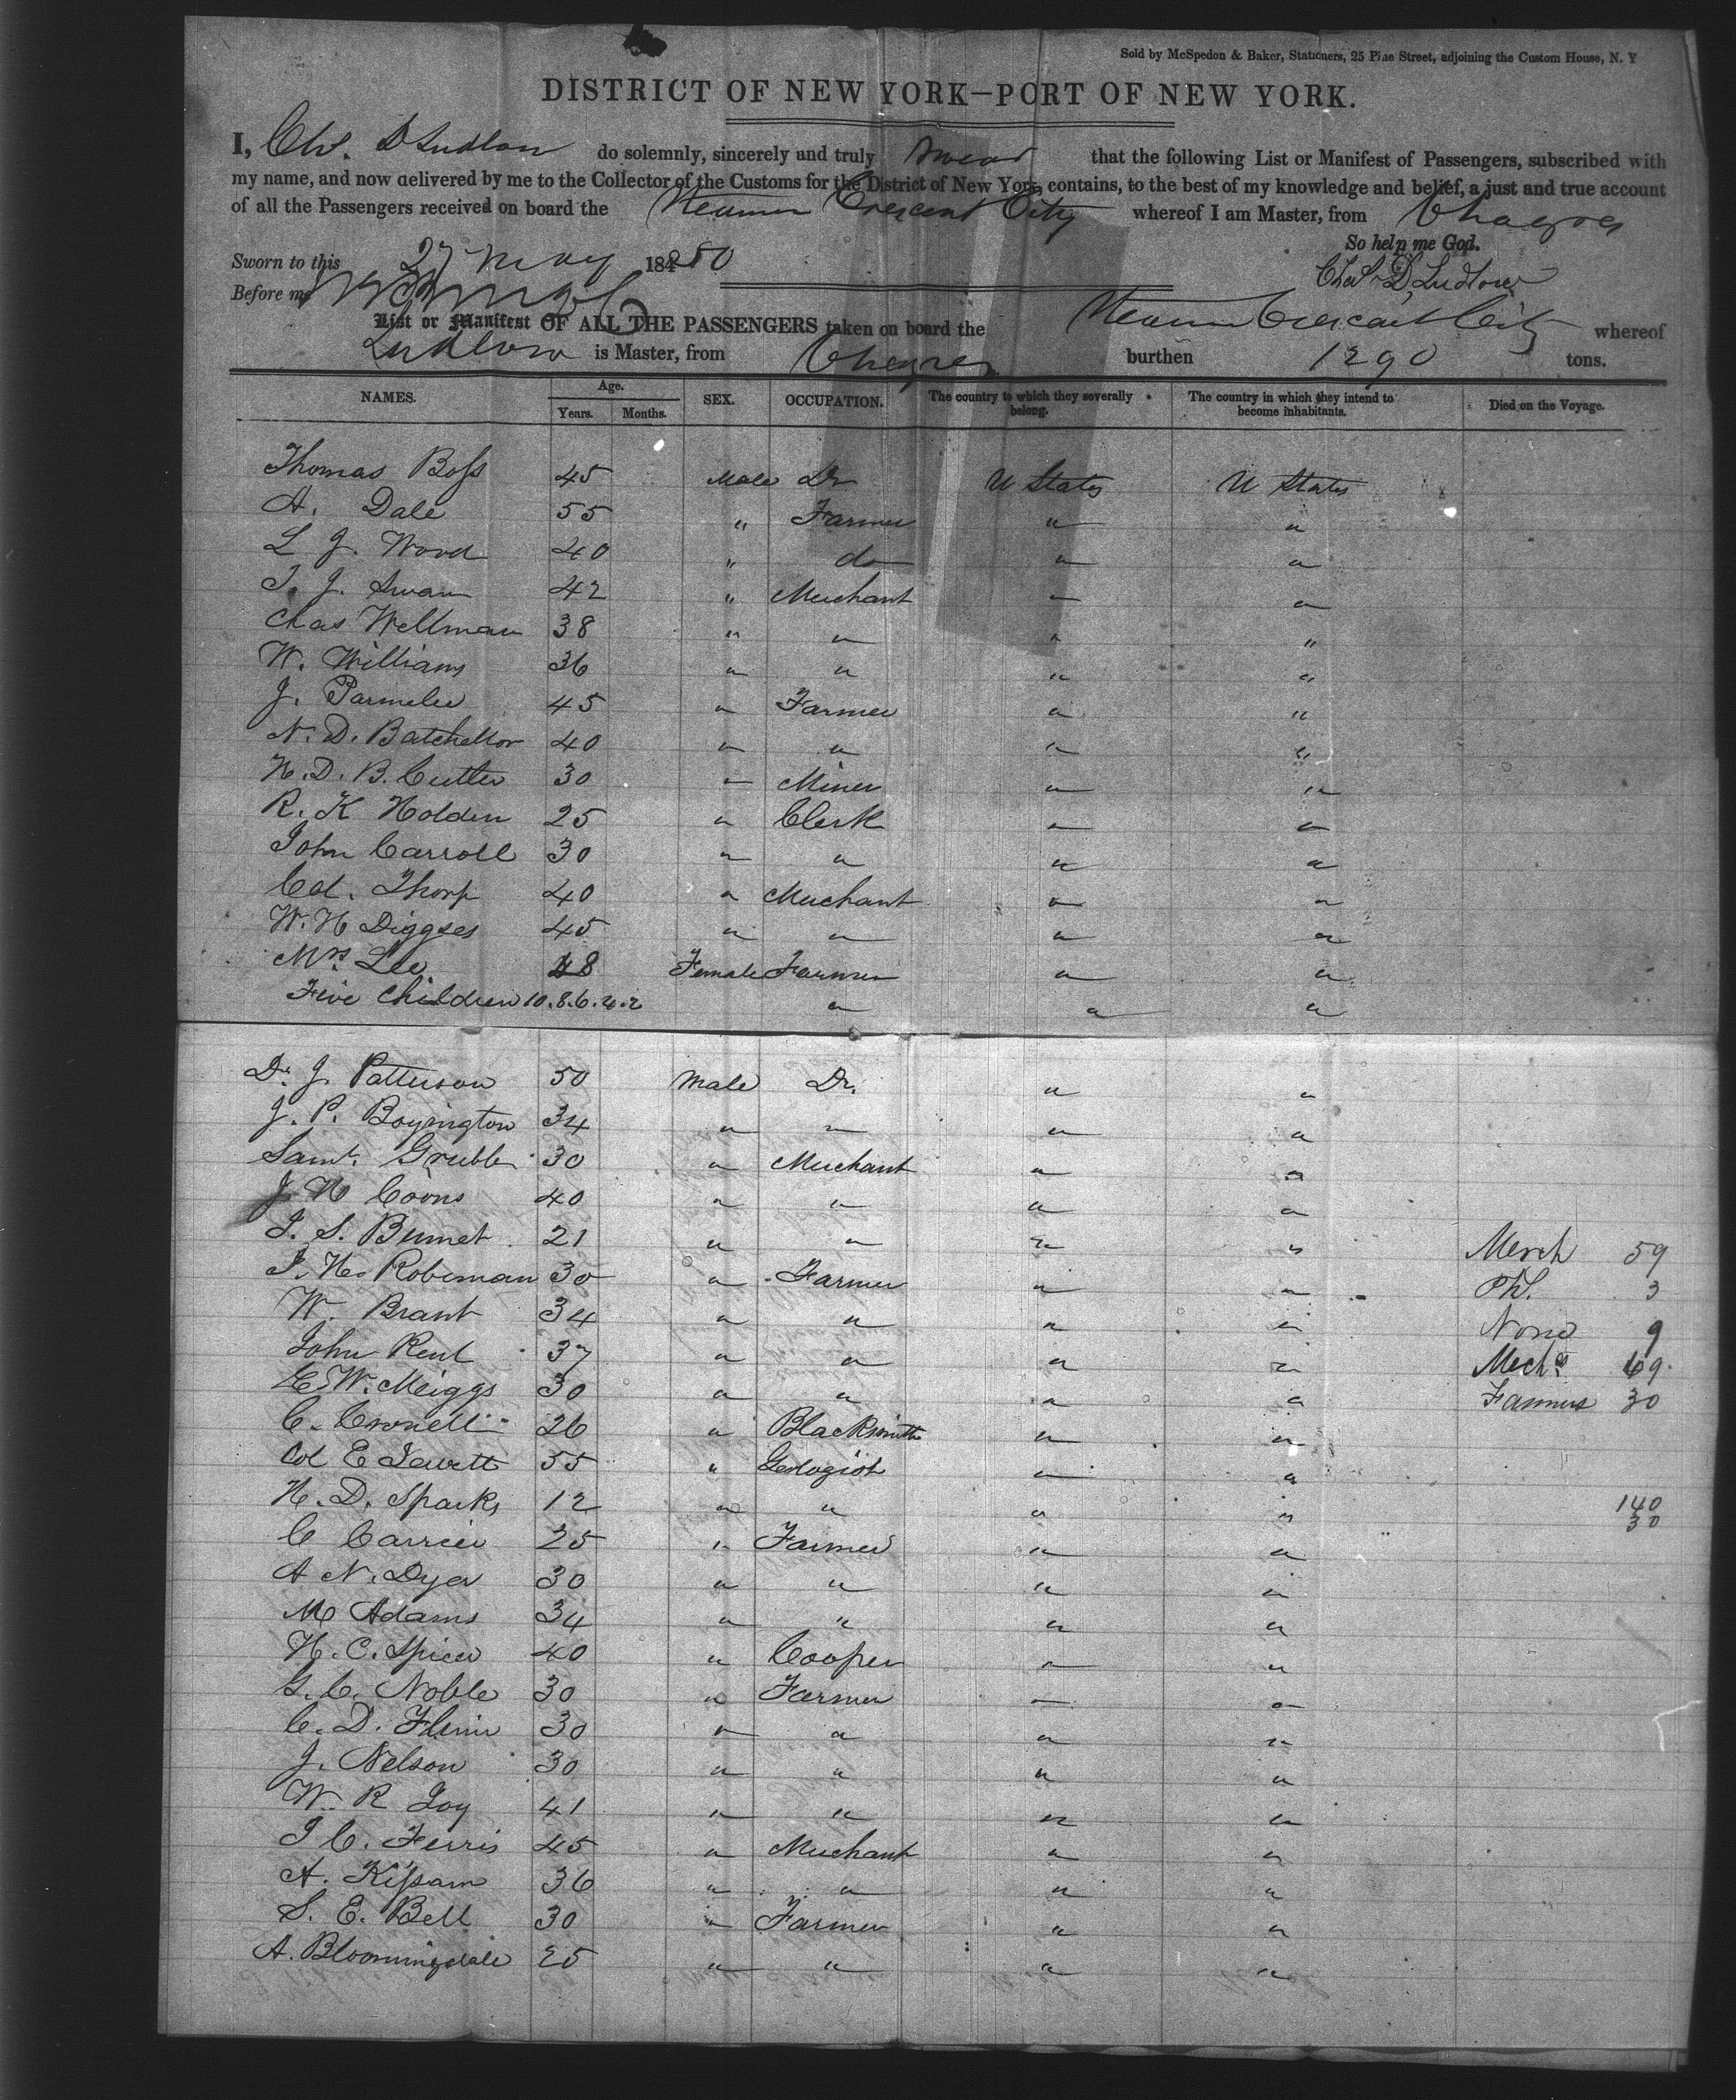 Sold by McSpedon & Baker, Stationers, 25 Pine Street, adjoining the Custom House, N. Y
DISTRICT OF NEW YORK—PORT OF NEW YORK.
I, Chs. D Ludlow do solemnly, sincerely and truly swear that the following List or Manifest of Passengers, subscribed with
my name, and now delivered by me to the Collector of the Customs for the District of New York, contains, to the best of my knowledge and belief, a just and true account
of all the Passengers received on board the Steamer Crescent City whereof I am Master, from Chagres
So help me God.
Sworn to this 27 May 1850 Chas D Ludlow
Before me
List or Manifest OF ALL THE PASSENGERS taken on board the Steamer Crescent City whereof
Ludlow is Master, from Chagres burthen 1290 tons.
NAMES. Age. Years. Months. SEX. OCCUPATION. The country to which they severally belong. The country in which they intend to become inhabitants. Died on the Voyage.
Thomas Boss 45 Male Dr U States U States
A. Dale 55 " Farmer " "
L J. Wood 40 " do " "
T. J. Swan 42 " Merchant " "
Chas Wellman 38 " " " "
W. Williams 36 " " " "
J. Parmelee 45 " Farmer " "
N. D. Batchellor 40 " " " "
H. D. B. Cutler 30 " Miner " "
R. K Holden 25 " Clerk " "
John Carroll 30 " " " "
Col. Thorp 40 " Merchant " "
W. H Diggses 45 " " " "
Mrs. Lee 48 Female Farmer " "
Five Children 10.8.6.4.2 " " "
Dr. J. Patterson 50 Male Dr. " "
J. P. Boyington 34 " " " "
Saml. Grubb 30 " Merchant " "
J H Coons 40 " " " "
J. S. Burnet 21 " " " " Merch 59
J. H. Robeman 30 " Farmer " " Ph. 3
W. Brant 34 " " " " None 9
John Kent 37 " " " " Mechs 69
C. W. Meiggs 30 " " " " Farmers 30
C. Cronell 26 " Blacksmith " "
Col E Jewett 55 " Geologist " "
H. D. Sparks 12 " " " " 140
30
C Carrier 25 " Farmer " "
A N. Dyer 30 " " " "
M Adams 34 " " " "
H. C. Spicer 40 " Cooper " "
G. C. Noble 30 " Farmer " "
C. D. 30 " " " "
J. Nelson 30 " " " "
W. R Joy 41 " " " "
J C. Ferris 45 " Merchant " "
A. Kissam 36 " " " "
S. E. Bell 30 " Farmer " "
A. Bloomingdale 25 " " " "